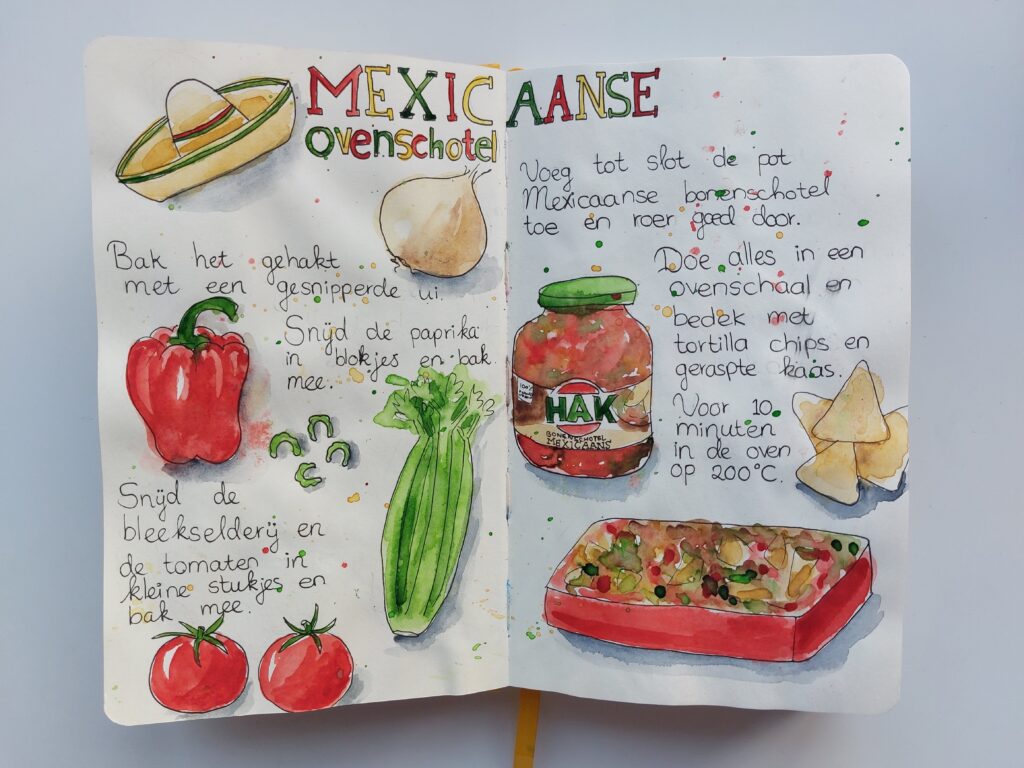 MEXICAANSE
ovenschotel
Bak het gehakt
met een gesnipperde ui.
Snijd de paprika
in blokjes en bak
mee.
Snijd de
bleekselderij en
de tomaten in
kleine stukjes en
bak mee.
Voeg tot slot de pot
Mexicaanse bonenschotel
toe en roer goed door.
Doe alles in een
ovenschaal en
bedek met
tortilla chips en
geraspte kaas.
100%
HAK
BONENSCHOTEL
MEXICAANS
Voor 10
minuten
in de oven
op 200°C.